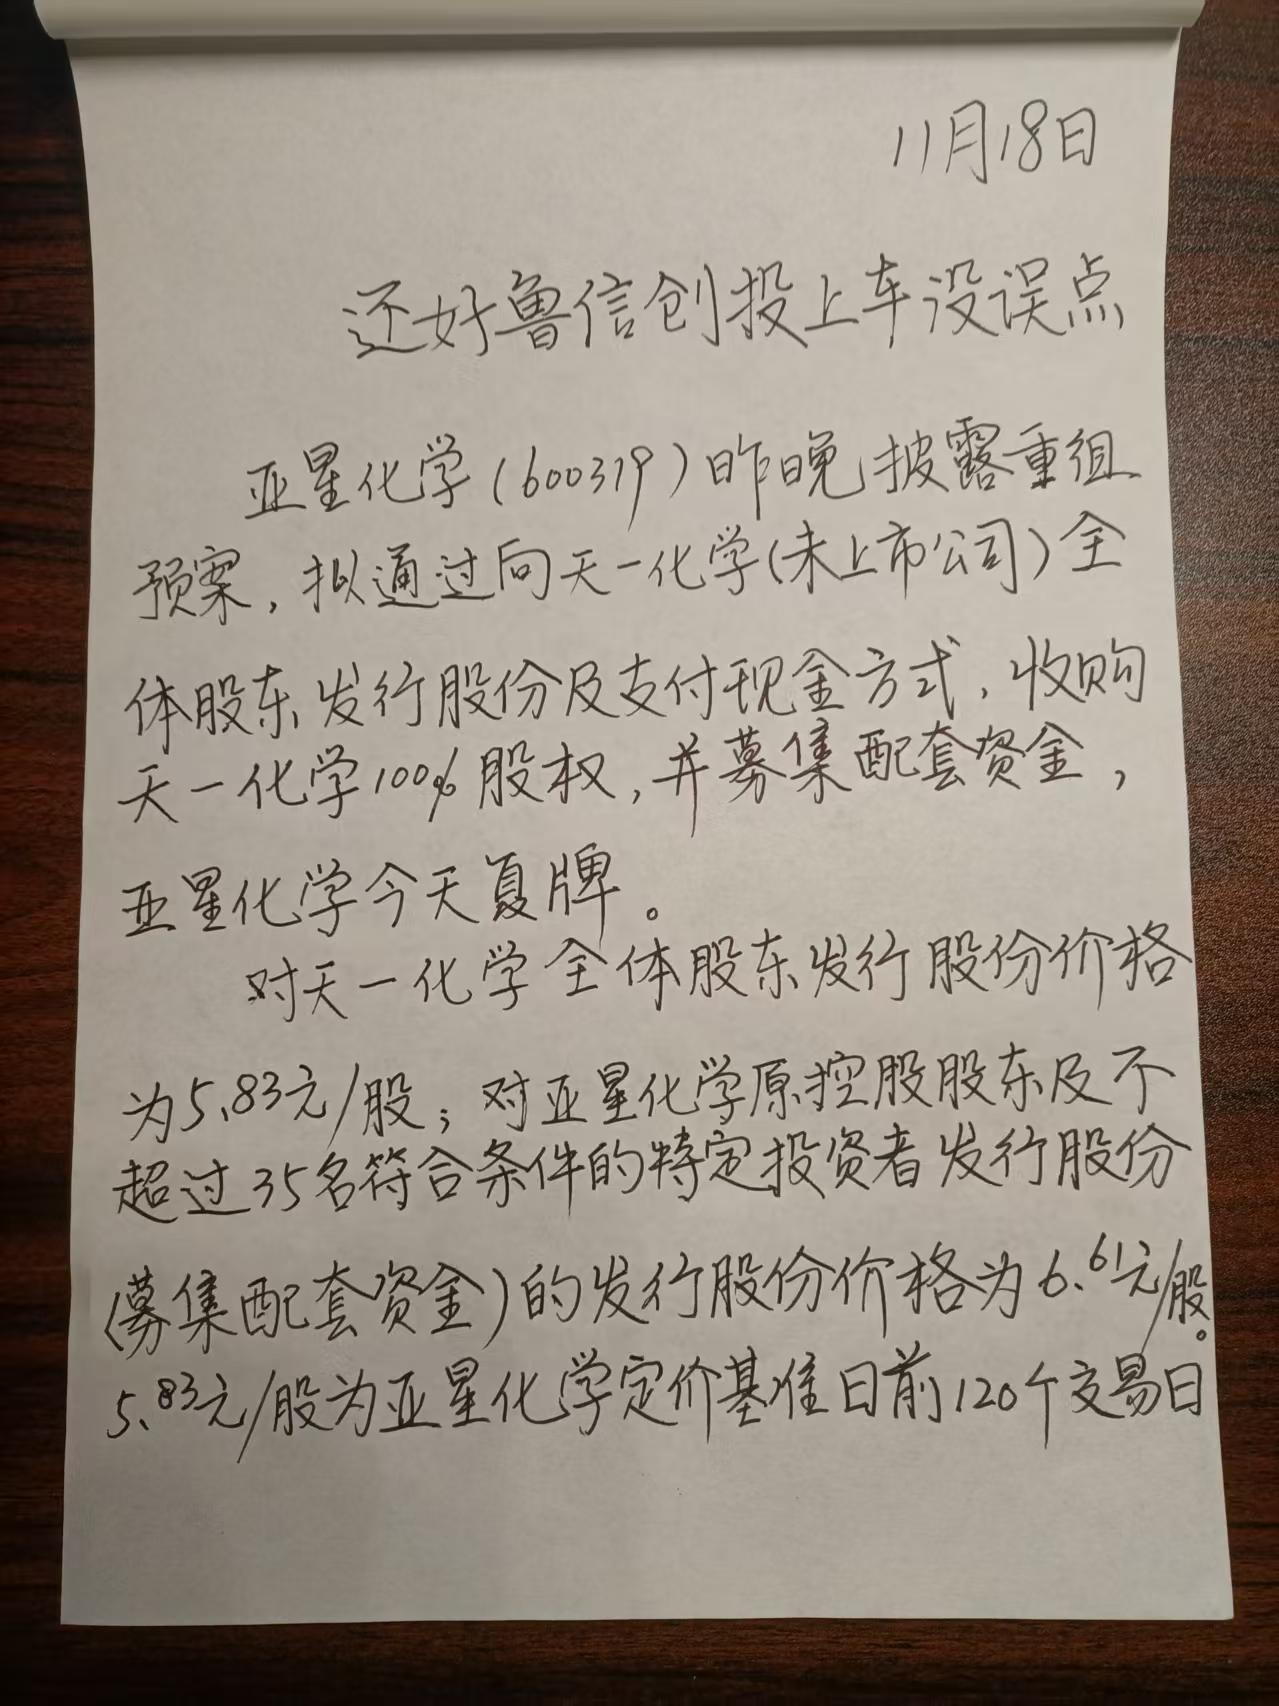 11月18日
还好鲁信创投上车没误点
亚星化学(600319)昨晚披露重组
预案，拟通过向天一化学(未上市公司)全
体股东发行股份及支付现金方式，收购
天一化学100%股权，并募集配套资金，
亚星化学今天复牌。
对天一化学全体股东发行股份价格
为5.83元/股；对亚星化学原控股股东及不
超过35名符合条件的特定投资者发行股份
(募集配套资金)的发行股份价格为6.61元/股。
5.83元/股为亚星化学定价基准日前120个交易日